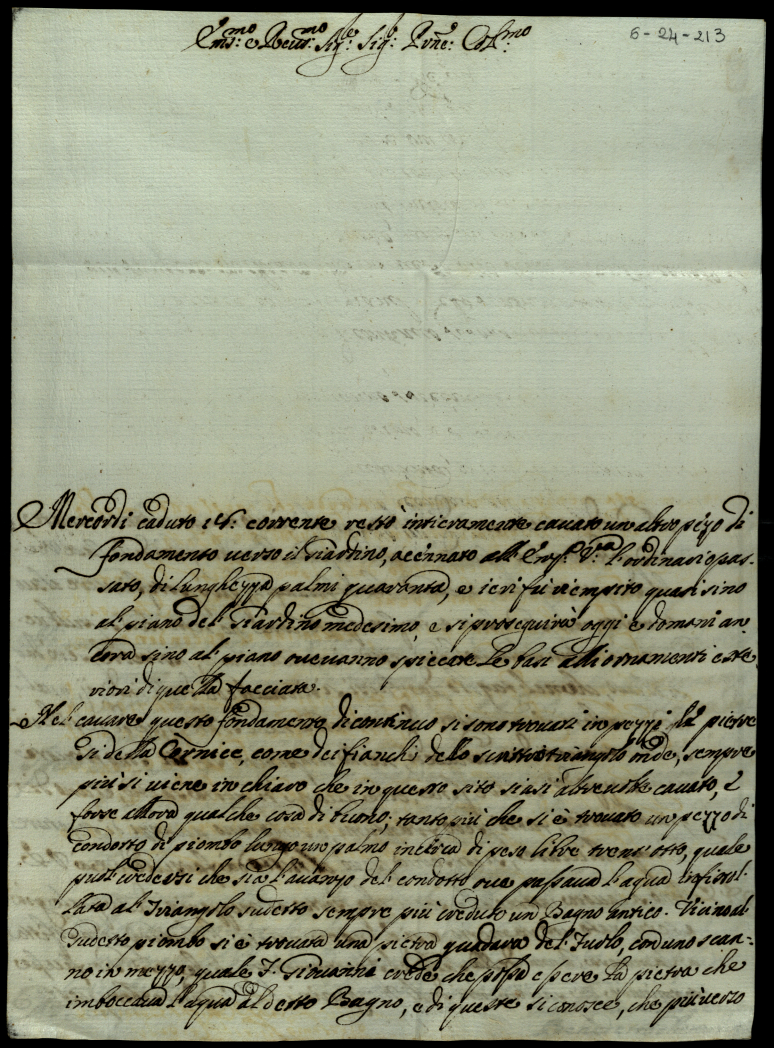 6-24-213
Em̃o: e Reu.mo Sig.e Sig: Prõne: Col.mo
Mercordì caduto 14: corrente restò intieramente cauato un altro pezzo di
fondamento uerso il Giardino, accennato all' Em.a V.ra l'ordinario pas-
sato, di lunghezza palmi quaranta, e ieri fù riempito quasi sino
al piano del Giardino medesimo, e si proseguirà oggi e domani an
cora sino al piano oue uanno spiccare le basi alli ornamenti este
riori di quella facciata.
Nel cauare questo fondamento di continuo si sono trouati in pezzi
della Cornice, come dei fianchi dello scritto triangolo, onde sempre
più si uiene in chiaro che in questo sito siasi altre uolte cauato, e
forse allora qualche cosa di buono; tanto più che si è trouato un pezzo di
condotto di piombo lungo un palmo in circa di peso libre trent'otto, quale
può credersi che sia l'auanzo del condotto oue passaua l'aqua
al Triangolo sudetto sempre più creduto un Bagno antico. Vicino al
sudetto piombo si è trouata una pietra quadara del Tuolo, con uno scan-
no in mezzo, quale S. Giouanni crede che possa essere la pietra che
imboccaua l'aqua al detto Bagno, e di queste si conosce, che più uerso